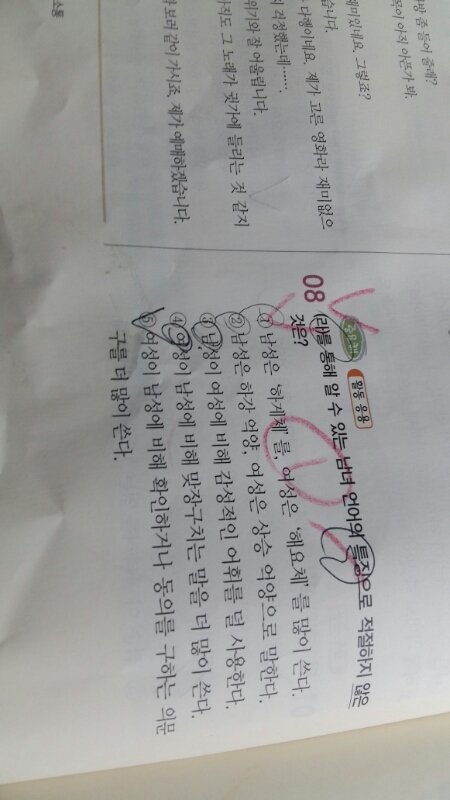 방 좀 들어 줄래?
쪽이 아직 아픈가 봐.
재미있네요. 그렇죠?
습니다.
다행이네요. 제가 고른 영화라 재미없으
걱정했는데…….
위기와 잘 어울립니다.
직도 그 노래가 귓가에 들리는 것 같지
보러 같이 가시죠. 제가 예매하겠습니다.
소통
활동 응용
08 (라)를 통해 알 수 있는 남녀 언어의 특징으로 적절하지 않은
것은?
① 남성은 '하게체'를, 여성은 '해요체'를 많이 쓴다.
② 남성은 하강 억양, 여성은 상승 억양으로 말한다.
③ 남성이 여성에 비해 감성적인 어휘를 덜 사용한다.
④ 여성이 남성에 비해 맞장구치는 말을 더 많이 쓴다.
⑤ 여성이 남성에 비해 확인하거나 동의를 구하는 의문
구를 더 많이 쓴다.